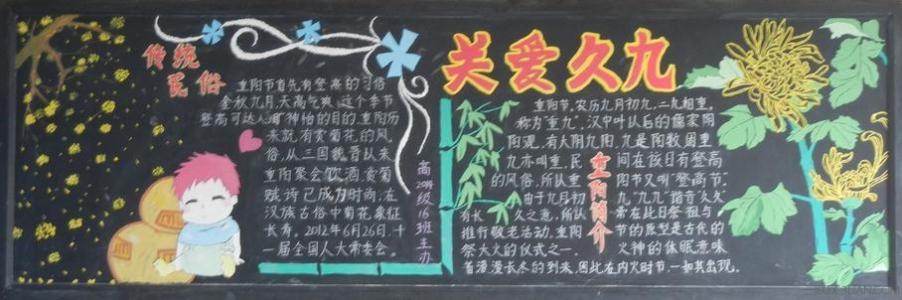 传统
民俗
重阳节首先有登高的习俗
金秋九月,天高气爽,这个季节
登高可达心旷神怡的目的,重阳历
来就有赏菊花的风
俗,从三国魏晋以来
重阳聚会饮酒、赏菊
赋诗已成为时尚,在
汉族古俗中菊花象征
长寿。2012年6月26日,十
一届全国人大常委会。
高
级16班主办
关爱久九
重阳节,农历九月初九,二九相重,
称为"重九",汉中叶以后的儒家阴
阳观,有六阴九阳,九是阳数,因重
九亦叫重 民间在该日有登高
的风俗,所以重 阳节又叫"登高节"。
由于九月初 九"九九"谐音"久久"
有长 久之意,所以 常在此日祭祖与
推行敬老活动,重阳 节的原型是古代的
祭大火的仪式之一 火神的休眠意味
着漫漫长冬的到来,因此,在内火时节,一如其出现。
重阳简介